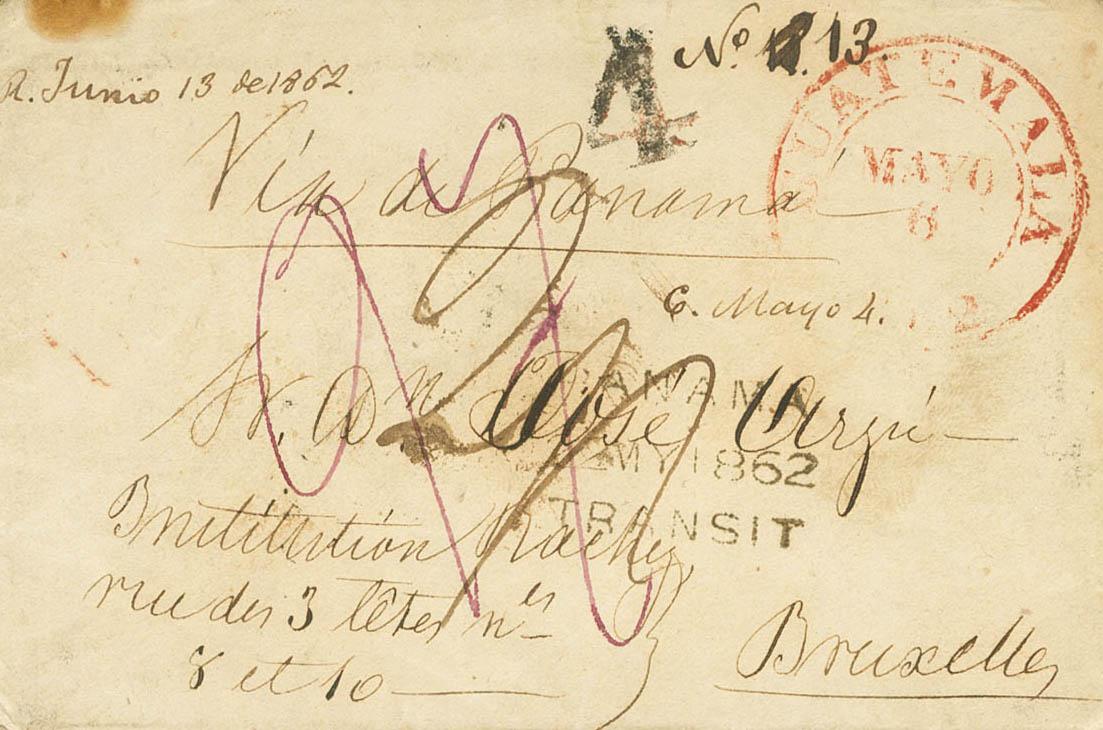 4
Nº 13.
R. Junio 13 de 1862.
GUATEMALA
MAYO
6
Via de Panamá
6. Mayo 4.
Sr. Dn José Arzú
PANAMA
MY 1862
TRANSIT
Institutión
rue des 3 têtes nes
8 et 10
Bruxelles